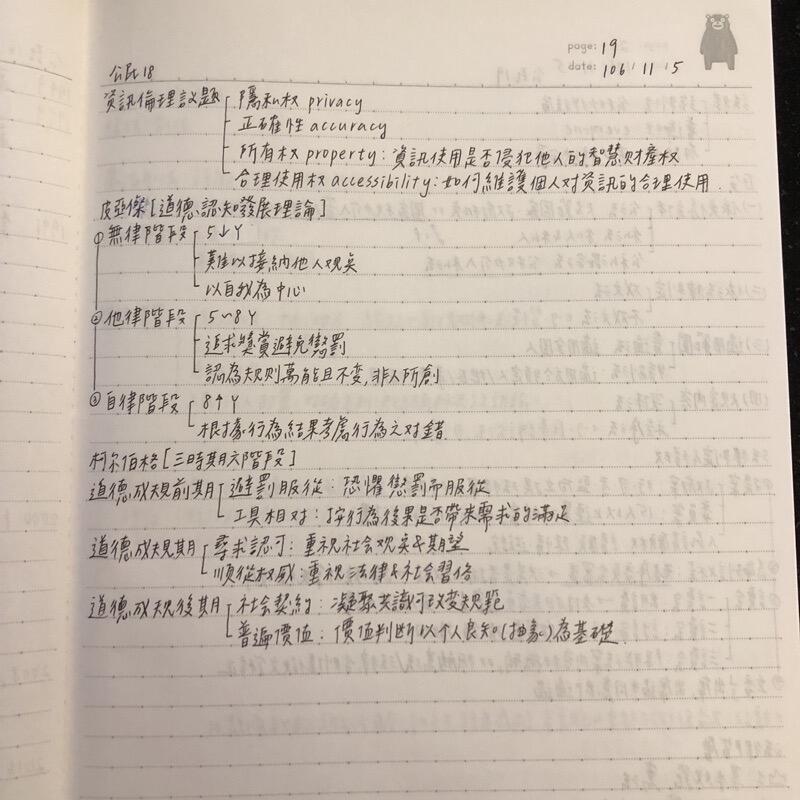 page: 19
date: 106/11/5
公民18
資訊倫理議題 隱私权 privacy
正確性 accuracy
所有权 property:資訊使用是否侵犯他人的智慧财產权
合理使用权 accessibility:如何維護個人对資訊的合理使用.
皮亞傑[道德認知發展理論]
①無律階段 5↓Y
難以接納他人观奌
以自我為中心
②他律階段 5~8Y
追求獎賞避免懲罰
認為規则萬能且不变,非人所創
③自律階段 8↑Y
根據行為結果考慮行為之对錯.
柯尔伯格[三時期六階段]
道德成規前期 避罰服從:恐懼懲罰而服從
工具相对:按行為後果是否帶来需求的滿足
道德成規期 尋求認可:重視社会观奌&期望
順從权威:重視法律&社会習俗
道德成規後期 社会契約:凝聚共識可改变規範
普遍價值:價值判断以个人良知(抽象)為基礎.